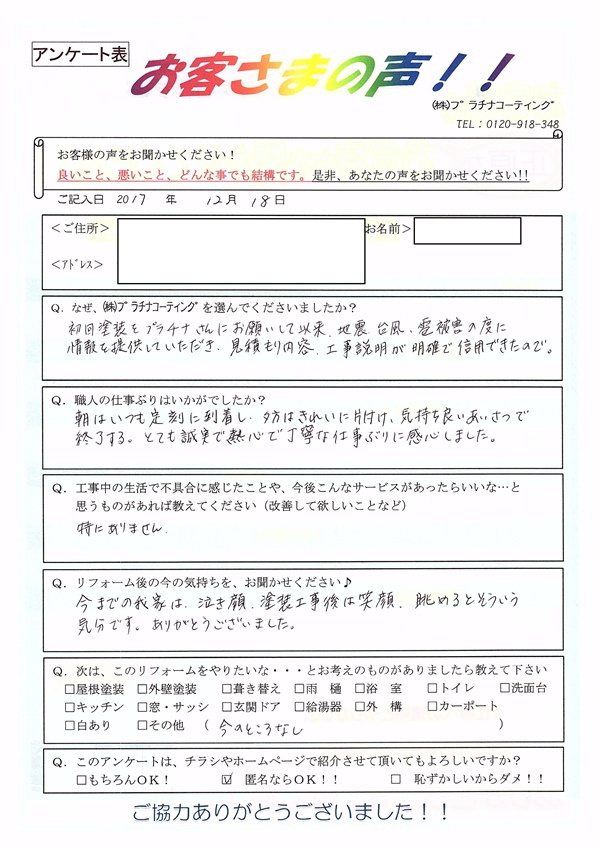 アンケート表
お客さまの声！！
㈱プラチナコーティング
TEL：0120-918-348
お客様の声をお聞かせください！
良いこと、悪いこと、どんな事でも結構です。是非、あなたの声をお聞かせください!!
ご記入日 2017 年 12月 18日
＜ご住所＞ お名前＞
＜アドレス＞
Q．なぜ、㈱プラチナコーティングを選んでくださいましたか？
初回塗装をプラチナさんにお願いして以来、地震、台風、雹被害の度に
情報を提供していただき、見積もり内容、工事説明が明確で信用できたので。
Q．職人の仕事ぶりはいかがでしたか？
朝はいつも定刻に到着し、夕方はきれいに片付け、気持ち良いあいさつで
終了する。とても誠実で熱心で丁寧な仕事ぶりに感心しました。
Q．工事中の生活で不具合に感じたことや、今後こんなサービスがあったらいいな…と
思うものがあれば教えてください（改善して欲しいことなど）
特にありません。
Q．リフォーム後の今の気持ちを、お聞かせください♪
今までの我家は、泣き顔、塗装工事後は笑顔、眺めるとそういう
気分です。ありがとうございました。
Q．次は、このリフォームをやりたいな・・・とお考えのものがありましたら教えて下さい
□屋根塗装 □外壁塗装 □葺き替え □雨 樋 □浴 室 □トイレ □洗面台
□キッチン □窓・サッシ □玄関ドア □給湯器 □外 構 □カーポート
□白あり □その他 （ 今のところなし ）
Q．このアンケートは、チラシやホームページで紹介させて頂いてもよろしいですか？
□もちろんOK！ ☑ 匿名ならOK！！ □ 恥ずかしいからダメ！！
ご協力ありがとうございました！！